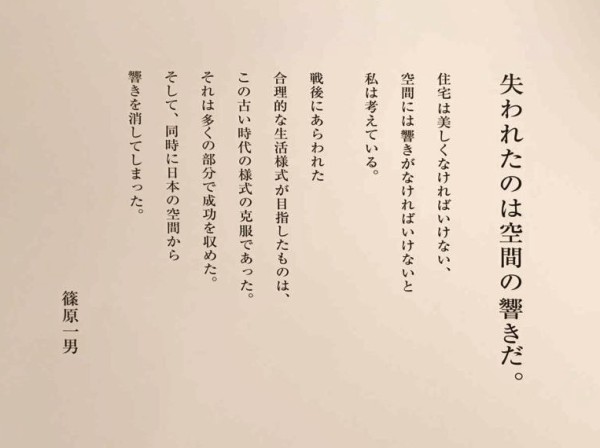 失われたのは空間の響きだ。
住宅は美しくなければいけない、
空間には響きがなければいけないと
私は考えている。
戦後にあらわれた
合理的な生活様式が目指したものは、
この古い時代の様式の克服であった。
それは多くの部分で成功を収めた。
そして、同時に日本の空間から
響きを消してしまった。
篠原一男